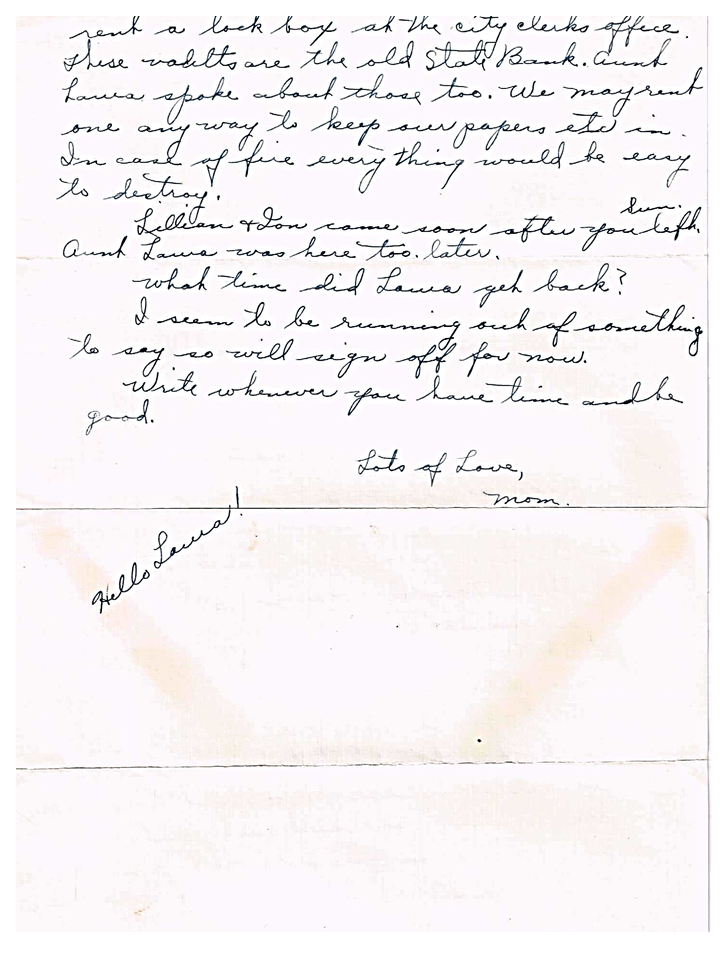 rent a lock box at the city clerks office.
These vaults are the old State Bank. Aunt
Laura spoke about those too. We may rent
one any way to keep our papers etc in.
In case of fire everything would be easy
to destroy.
Sun.
Lillian & Don came soon after you left.
Aunt Laura was here too. later.
What time did Laura get back?
I seem to be running out of something
to say so will sign off for now.
Write whenever you have time and be
good.
Lots of Love,
Mom.
Hello Laura!